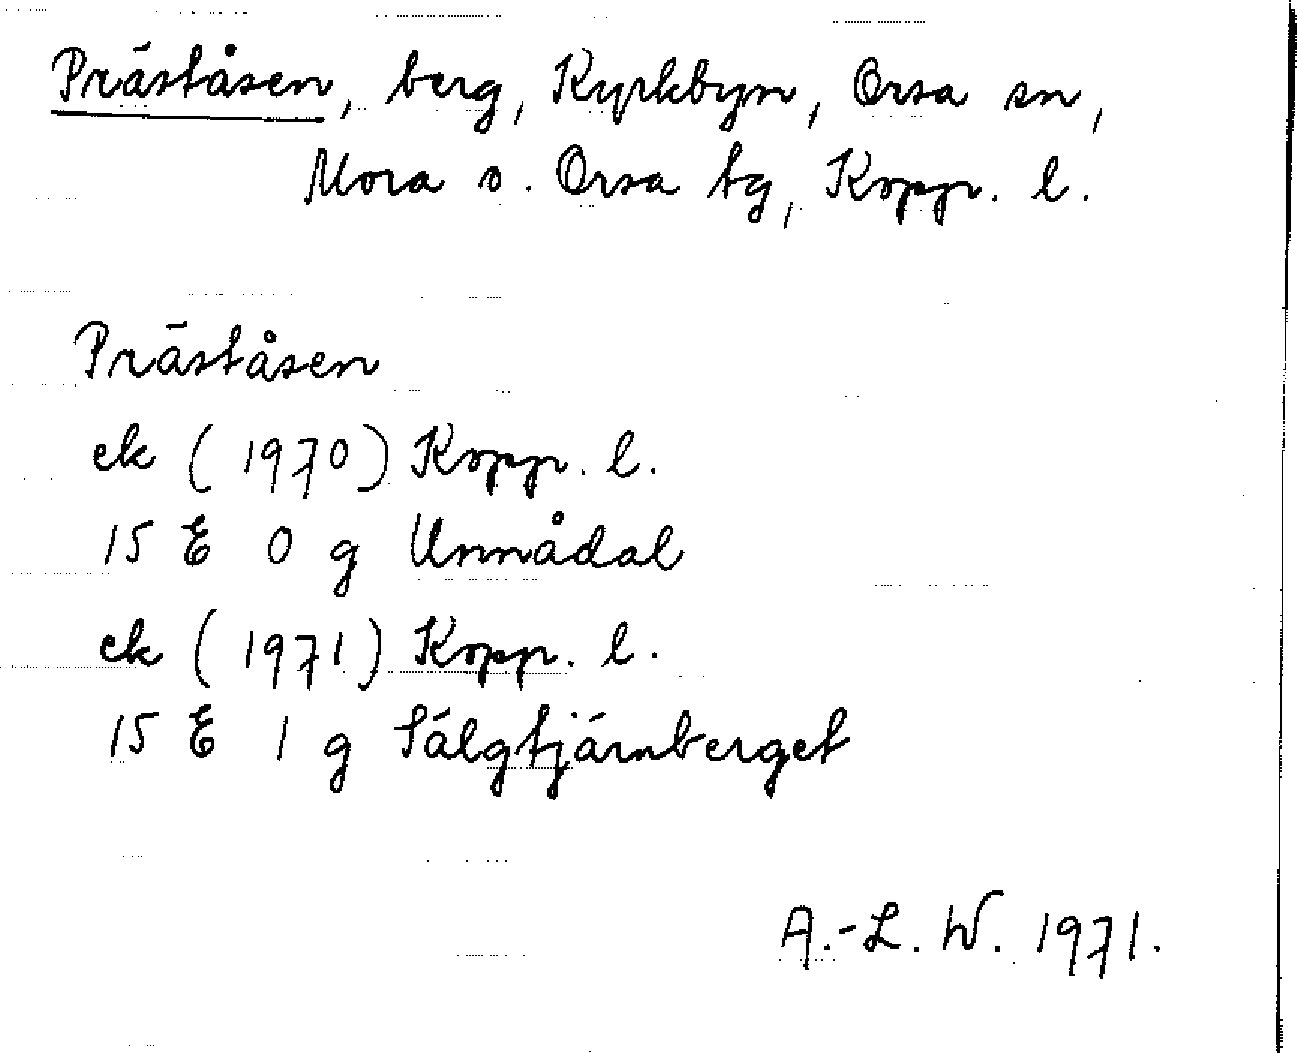 Präståsen, berg, Kyrkbyn, Orsa sn,
Mora o. Orsa tg, Kopp. l.
Präståsen
ek (1970) Kopp. l.
15 E 0 g Unnådal
ek (1971) Kopp. l.
15 E 1 g Sälgtjärnberget
A.-L. W. 1971.